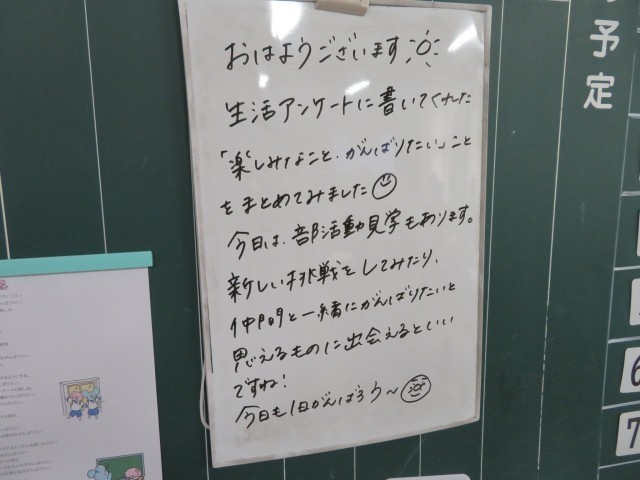 おはようございます
生活アンケートに書いてくれた
「楽しみなこと、がんばりたい」こと
をまとめてみました
今日は、部活動見学もあります。
新しい挑戦をしてみたり、
仲間と一緒にがんばりたいと
思えるものに出会えるといい
ですね!
今日も1日がんばろう〜
予定
6
7